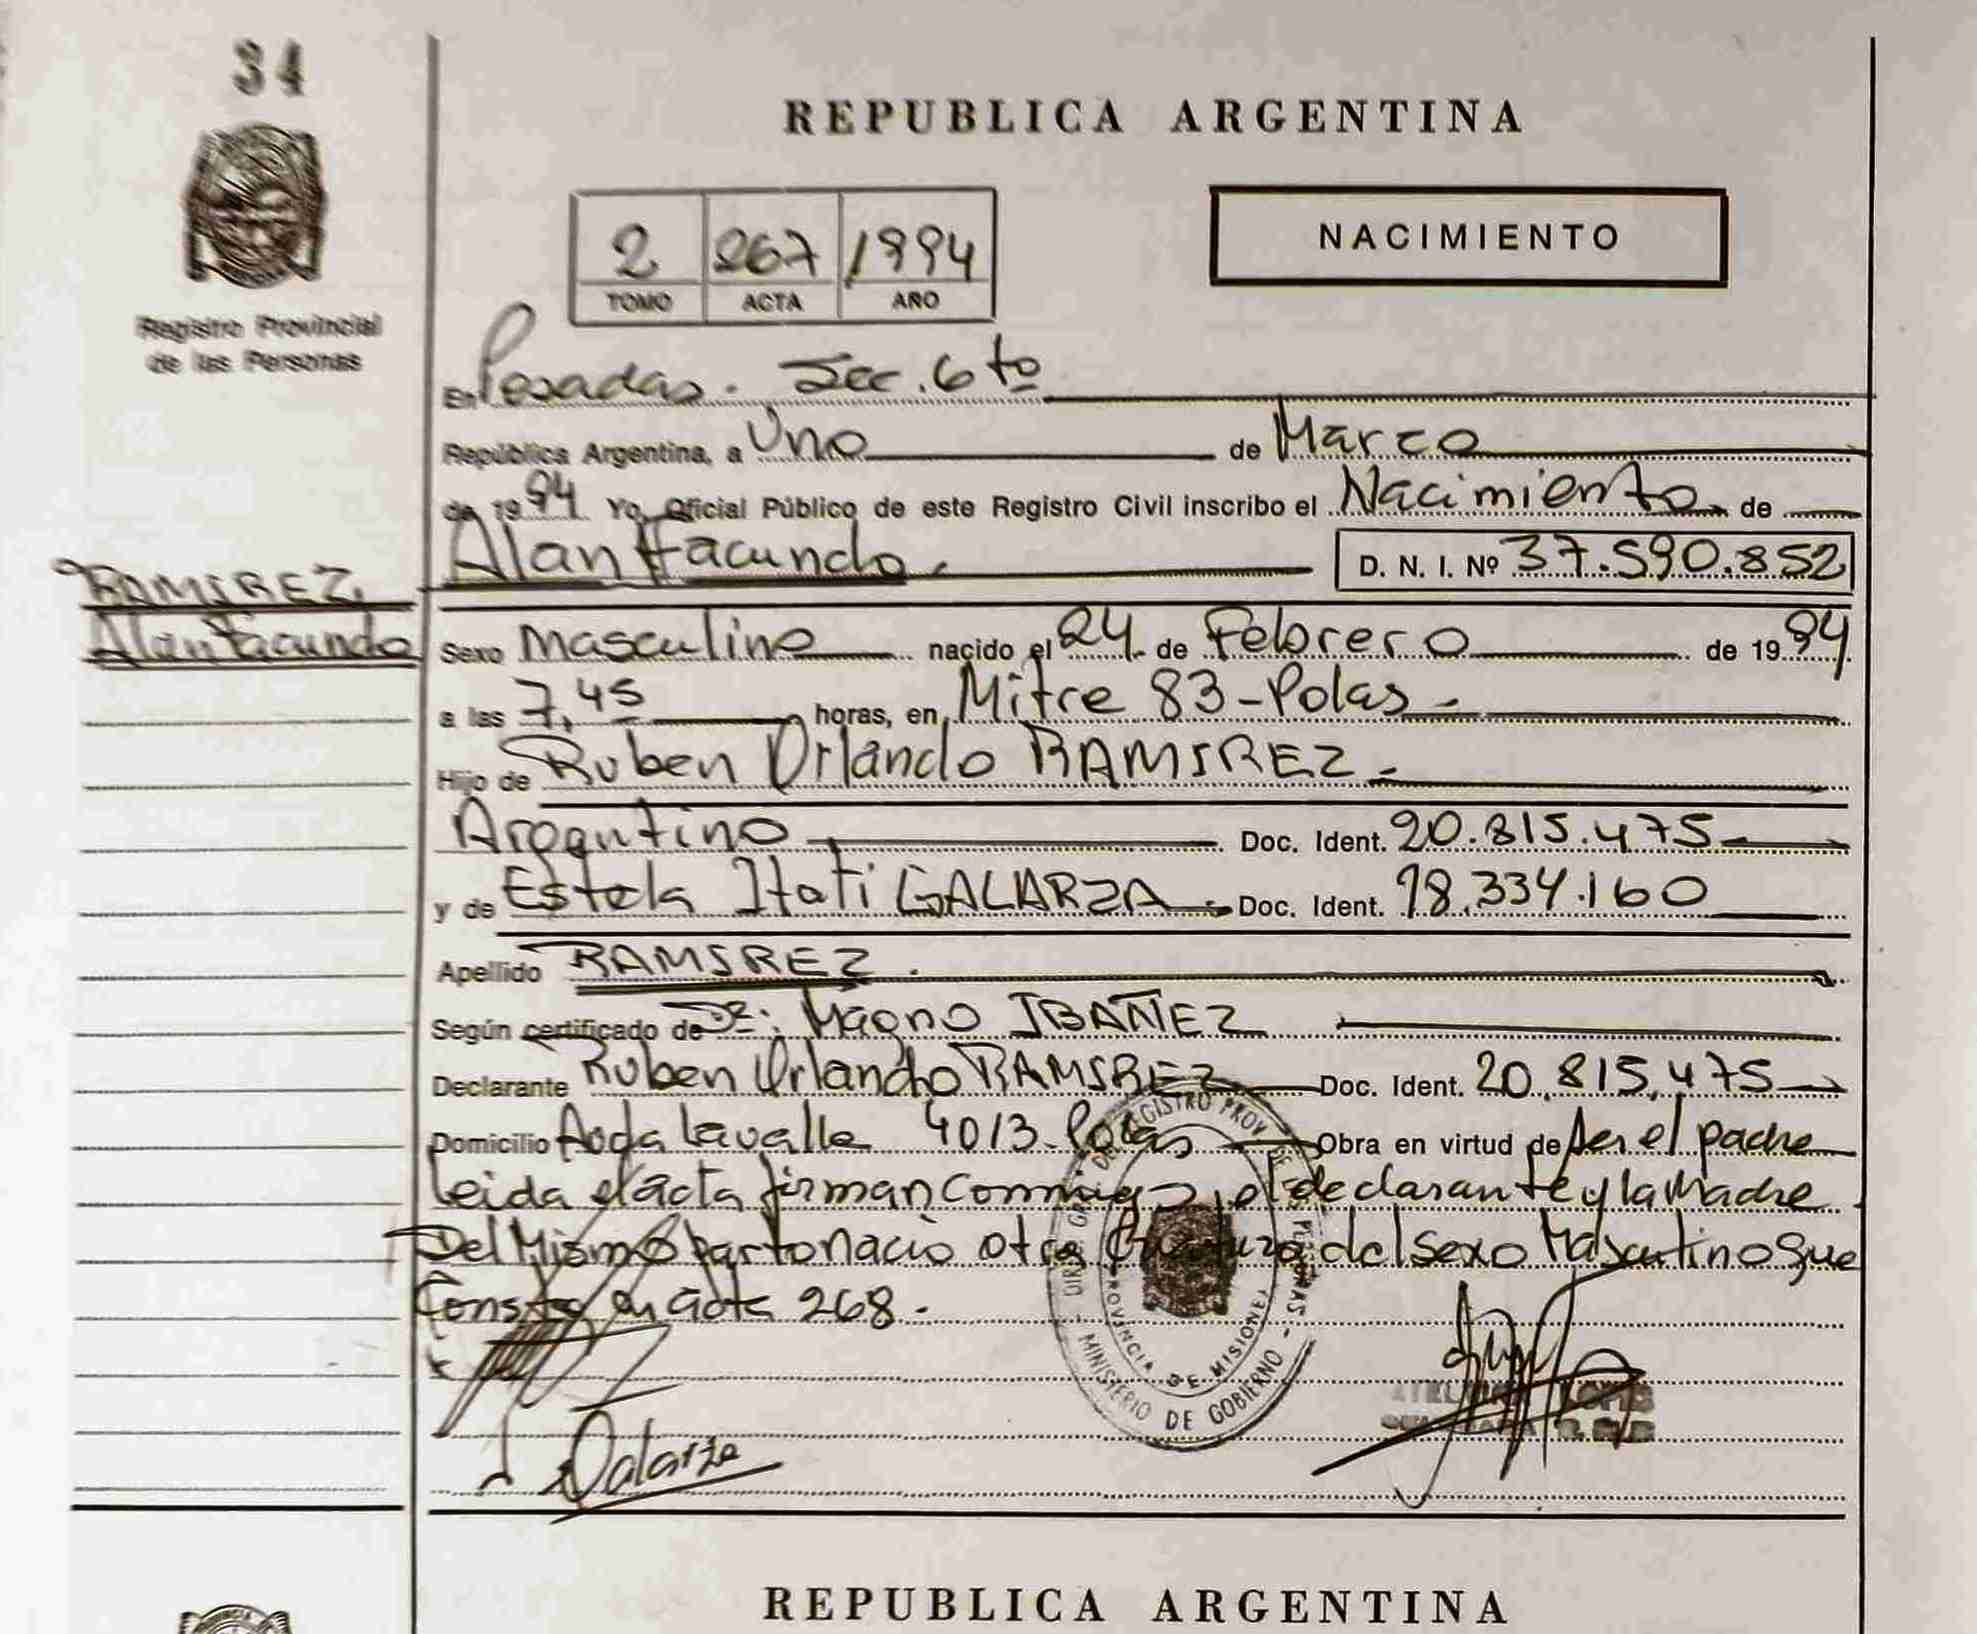 34
REPUBLICA ARGENTINA
2 267 1994
TOMO ACTA AÑO
NACIMIENTO
Registro Provincial
de las Personas
En Posadas. Sec. 6to
República Argentina, a Uno de Marzo
de 1994 Yo, Oficial Público de este Registro Civil inscribo el Nacimiento de
Alan Facundo. D. N. I. Nº 37.590.852
RAMIREZ,
Alan Facundo
Sexo Masculino nacido el 24 de Febrero de 1994
a las 7,45 horas, en Mitre 83-Pdas.
Hijo de Ruben Orlando RAMIREZ.
Argentino Doc. Ident. 20.815.475
y de Estela Itati GALARZA. Doc. Ident. 18.334.160
Apellido RAMIREZ.
Según certificado de Dr: Magno IBAÑEZ
Declarante Ruben Orlando RAMIREZ Doc. Ident. 20.815.475
Domicilio Avda Lavalle 4013-Pdas Obra en virtud de ser el padre
Leida el acta firman conmigo, el declarante y la Madre.
Del Mismo parto nació otra Criatura del sexo Masculino que
Consta en acta 268.
Galarza
DIR. GRAL. DE REGISTRO PROV. DE LAS PERSONAS
PROVINCIA DE MISIONES
MINISTERIO DE GOBIERNO
REPUBLICA ARGENTINA